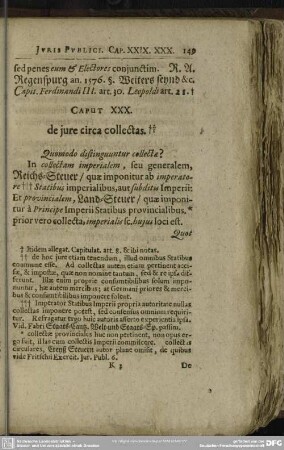 JURIS PUBLICI. CAP. XXIX. XXX. 149
sed penes eum & Electores conjunctim. R. A.
Regenspurg an. 1576. §. Weiters seynd &c.
Capit. Ferdinandi III. art. 30. Leopoldi art. 21. †
CAPUT XXX.
de jure circa collectas. ††
Quomodo distinguuntur collectæ?
In collectam imperialem, seu generalem,
Reichs-Steuer / quæ imponitur ab imperato-
re ††† Statibus imperialibus, aut subditis Imperii:
Et provincialem, Land-Steuer / quæ imponi-
tur à Principe Imperii Statibus provincialibus, *
prior vero collecta, imperialis sc. hujus loci est.
Quot
† Itidem allegat. Capitulat. art. 8. & ibi notat.
†† de hoc jure etiam tenendum, illud omnibus Statibus
commune esse. Ad collectas autem etiam pertinent acci-
sæ, & impostæ, quæ non nomine tantum, sed & re ipsa dif-
ferunt. Illæ enim proprie consumtibilibus solum impo-
nuntur, hæ autem mercibus; at Germani priores & merci-
bus & consumtibilibus imponere solent.
††† Imperator Statibus Imperii propria autoritate nullas
collectas imponere potest, sed consensus omnium requiri-
tur. Refragatur ergo huic autoris asserto experientia ipsa.
Vid. Fabri Staats-Cantz. passim.
* collectæ provinciales huc non pertinent, non opus er-
go fuit, illas cum collectis Imperii committere. collectas
circulares, Creyß Steuren autor plane omisit, de quibus
vide Fritschii Exercit. Jur. Publ. 6.
K 3 De